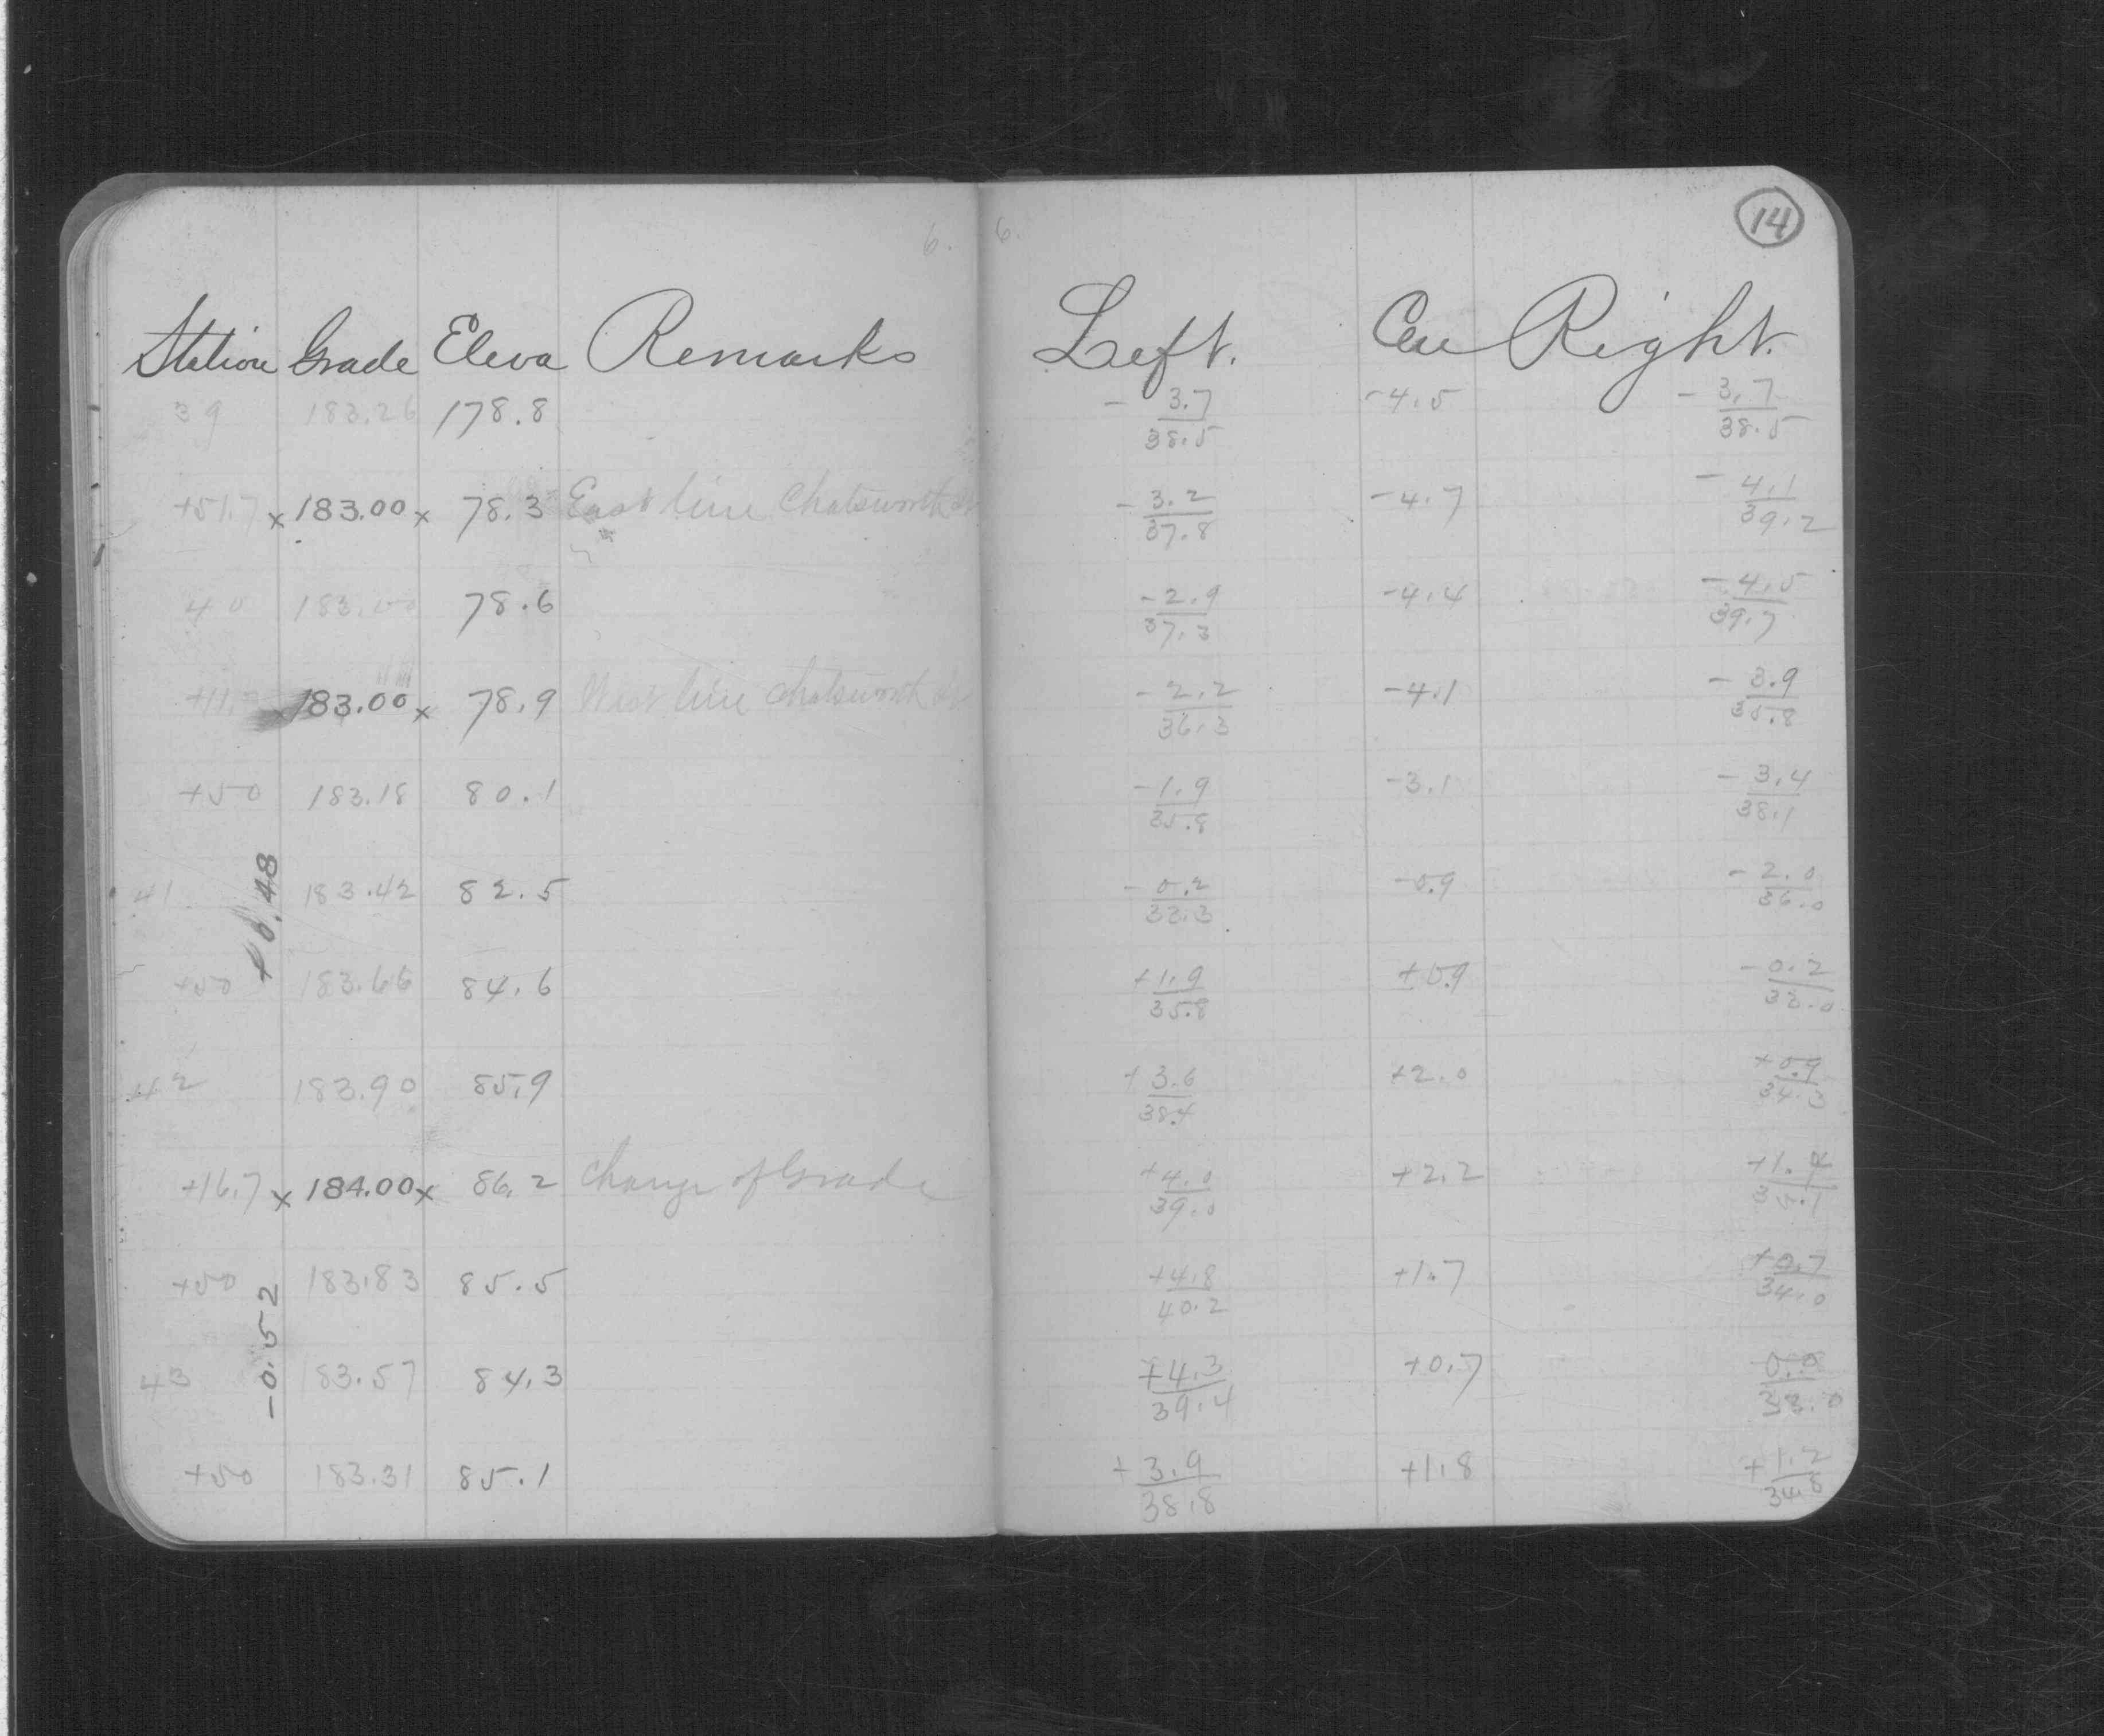 6. 6. 14
Station Grade Eleva Remarks Left. Cen Right.
39 183.26 178.8 - 3.7/38.5 -4.5 - 3.7/38.5
+51.7 x 183.00 x 78.3 East line Chatsworth St - 3.2/37.8 -4.7 - 4.1/39.2
40 183.00 78.6 - 2.9/37.3 -4.4 - 4.5/39.7
+11. x 183.00 x 78.9 West line Chatsworth St - 2.2/36.3 -4.1 - 3.9/38.8
+50 183.18 80.1 - 1.9/35.8 -3.1 - 3.4/38.1
+0.48
41 183.42 82.5 - 0.2/33.3 -0.9 - 2.0/36.0
+50 183.66 84.6 +1.9/35.8 +0.9 - 0.2/33.0
42 183.90 85.9 +3.6/38.4 +2.0 +0.9/34.
+16.7 x 184.00 x 86.2 Change of Grade +4.0/39.0 +2.2 +1.
-0.52
+50 183.83 85.5 +4.8/40.2 +1.7 +0.7/34.0
43 183.57 84.3 +4.3/39.4 +0.7 0.0/33.0
+50 183.31 85.1 +3.9/38.8 +1.8 +1.2/34.8